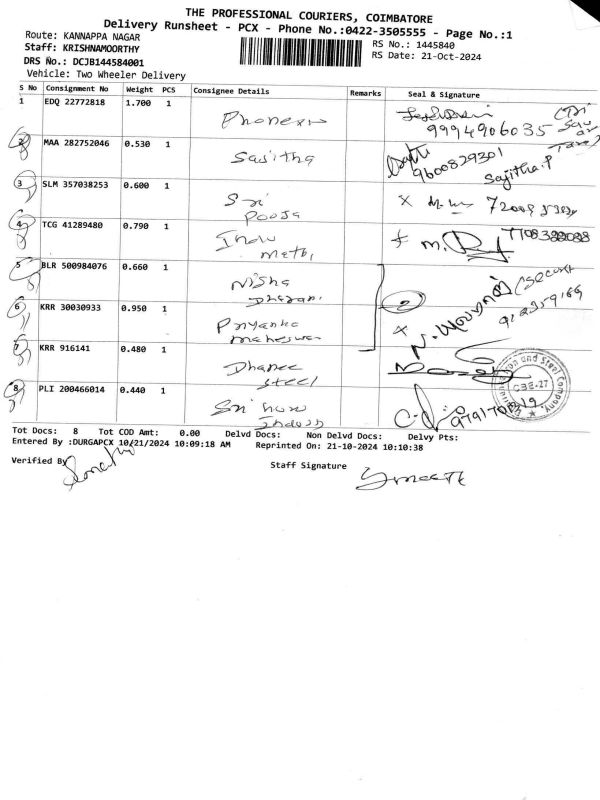 THE PROFESSIONAL COURIERS, COIMBATORE
Delivery Runsheet - PCX - Phone No.:0422-3505555 - Page No.:1
Route: KANNAPPA NAGAR
RS No.: 1445840
Staff: KRISHNAMOORTHY
RS Date: 21-Oct-2024
DRS No.: DCJB144584001
Vehicle: Two Wheeler Delivery
S No Consignment No Weight PCS Consignee Details Remarks Seal & Signature
1 EDQ 22772818 1.700 1
9994906035
2 MAA 282752046 0.530 1 Sajitha
9600829301
Sajitha.P
3 SLM 357038253 0.600 1 Sri
Pooja
4 TCG 41289480 0.790 1 Indu
Mathi
5 BLR 500984076 0.660 1 Nisha
Dharani
6 KRR 30030933 0.950 1 Priyanka
Maheswari
7 KRR 916141 0.480 1 Dhanee
Steel
CBE-27
8 PLI 200466014 0.440 1 Sri
Tot Docs: 8 Tot COD Amt: 0.00 Delvd Docs: Non Delvd Docs: Delvy Pts:
Entered By :DURGAPCX 10/21/2024 10:09:18 AM Reprinted On: 21-10-2024 10:10:38
Verified By
Staff Signature